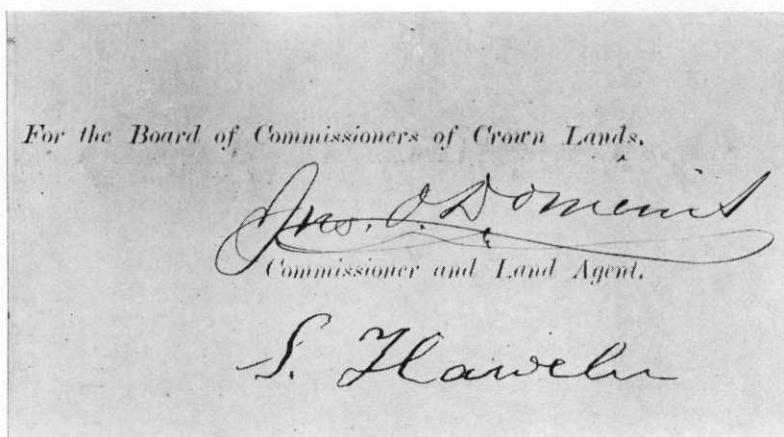 For the Board of Commissioners of Crown Lands.
Jno. O. Dominis
Commissioner and Land Agent.
S.